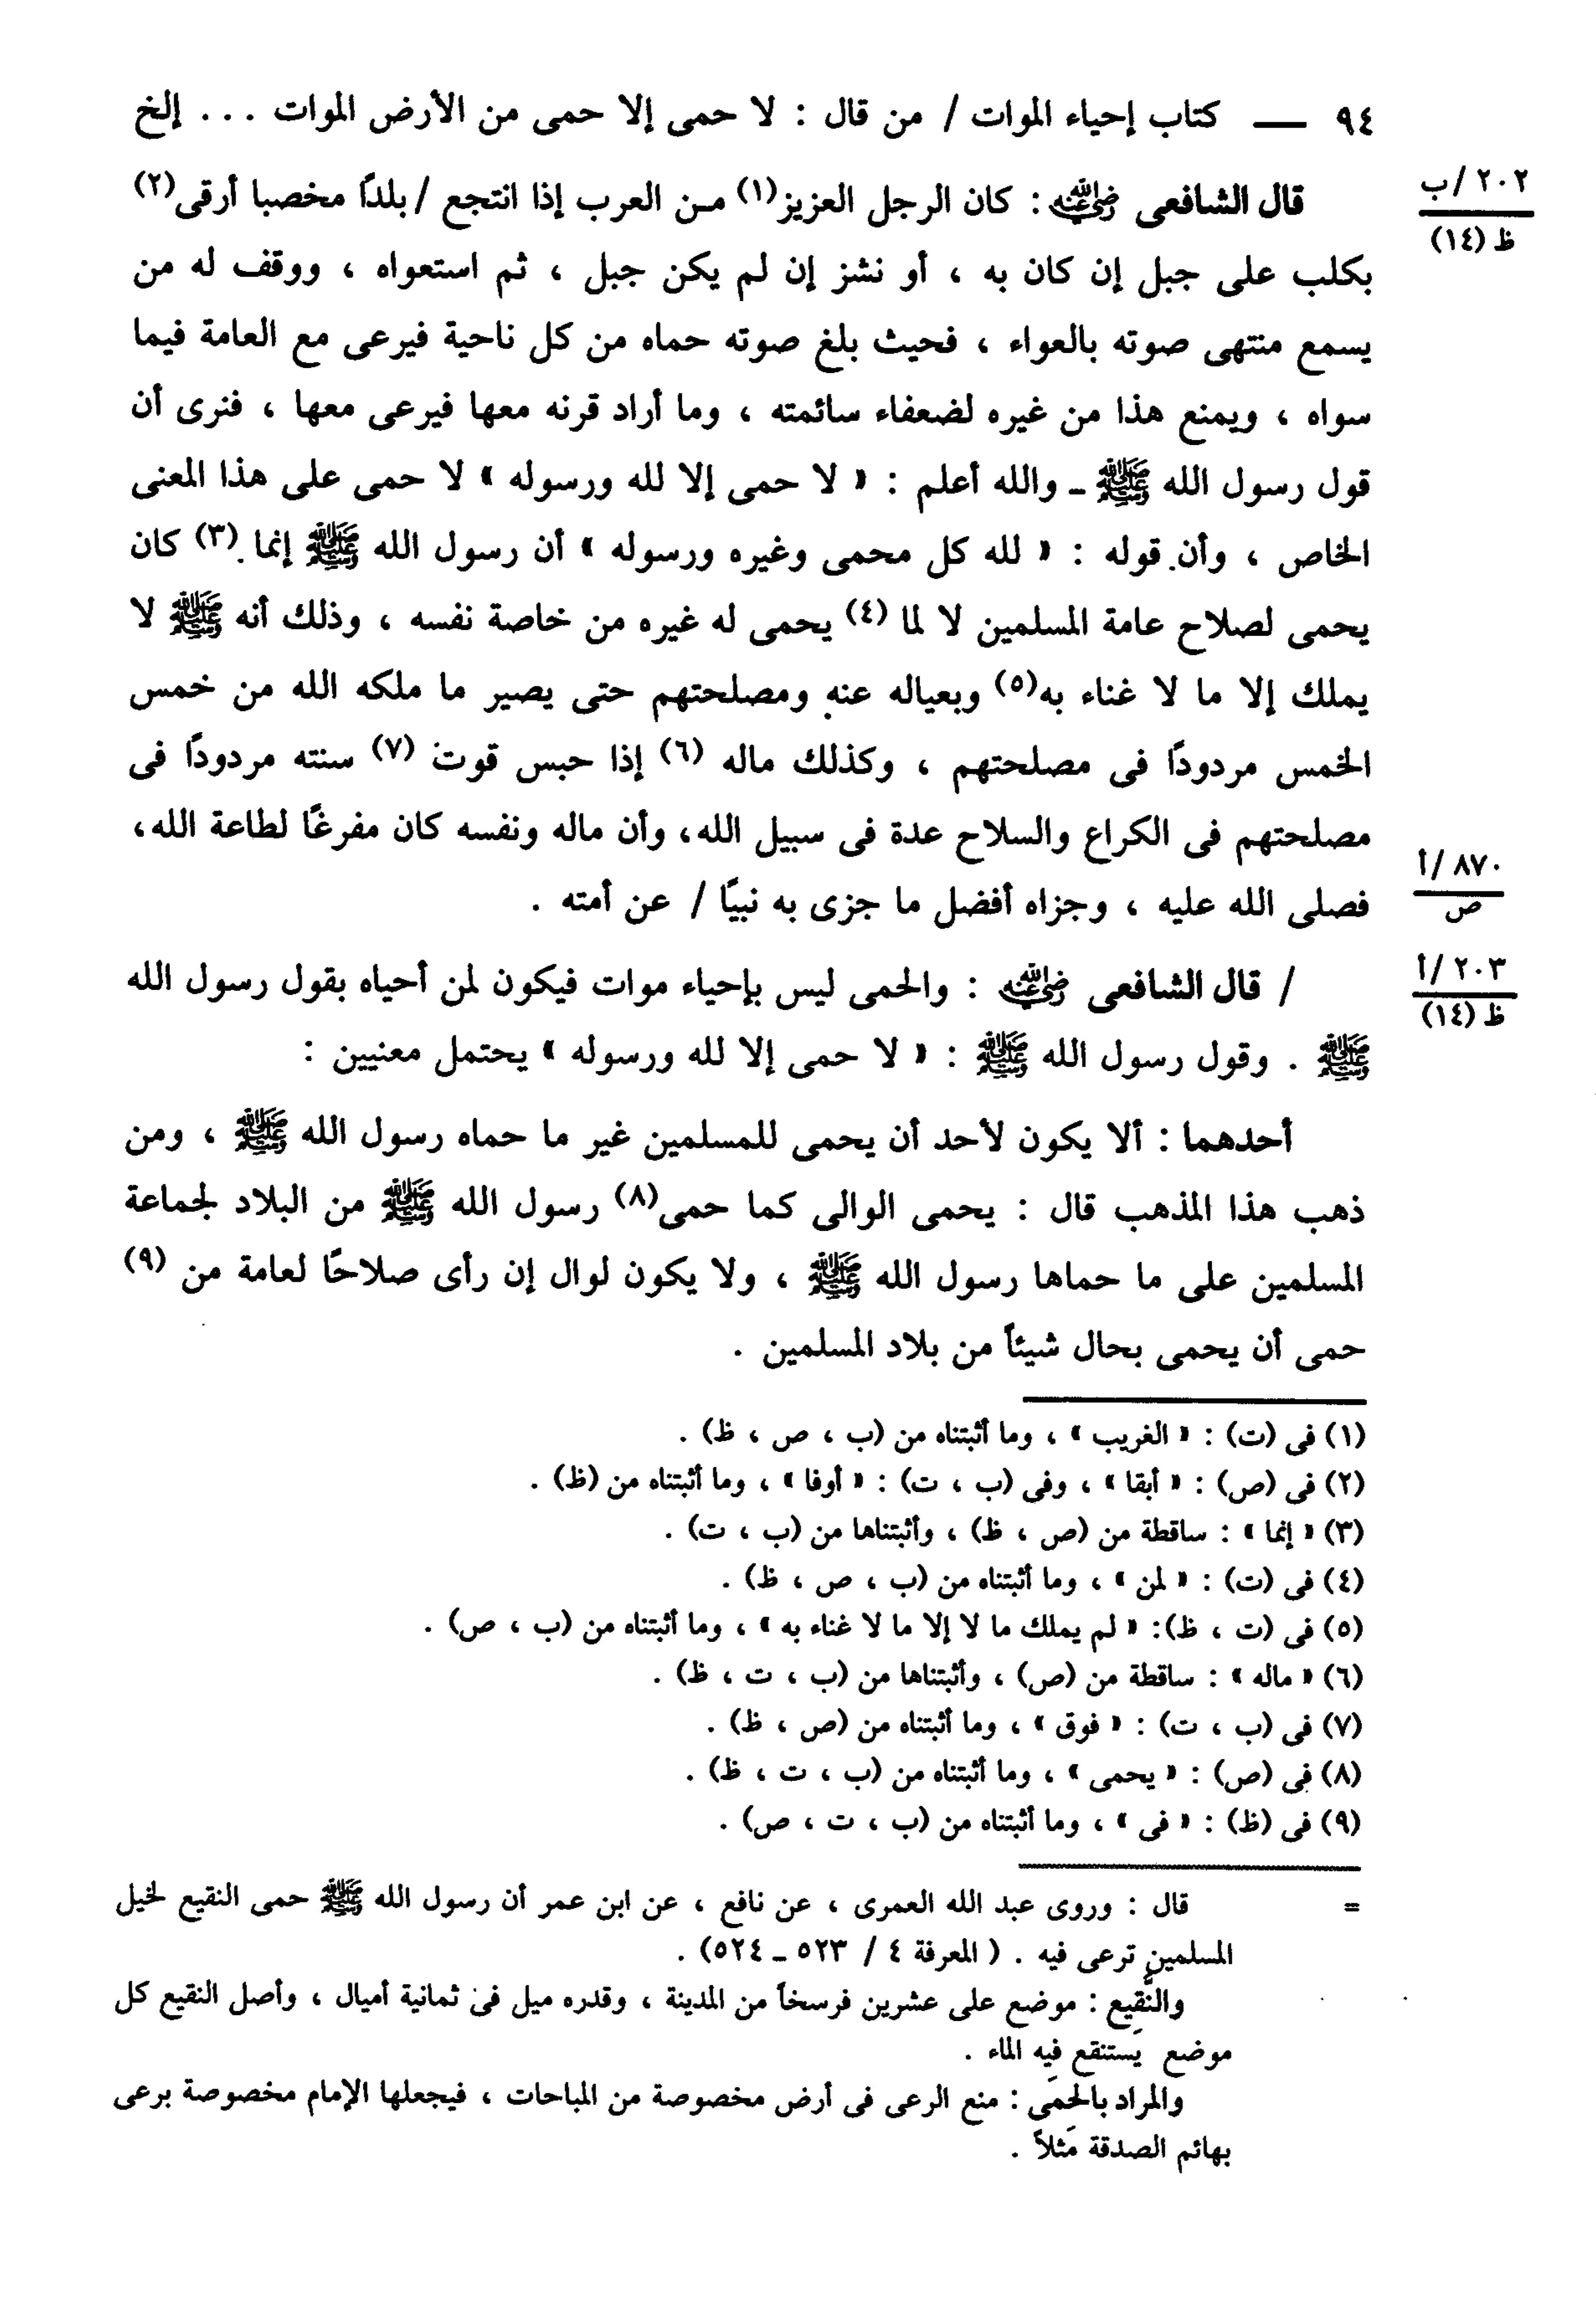 ٩٤ ــــ كتاب إحياء الموات / من قال : لا حمى إلا حمى من الأرض الموات . . . إلخ
٢٠٢ /ب
ظ (١٤)
قال الشافعى رضي الله عنه : كان الرجل العزيز(١) مـن العرب إذا انتجع / بلدًا مخصبا أرقى(٢)
بكلب على جبل إن كان به ، أو نشز إن لم يكن جبل ، ثم استعواه ، ووقف له من
يسمع منتهى صوته بالعواء ، فحيث بلغ صوته حماه من كل ناحية فيرعى مع العامة فيما
سواه ، ويمنع هذا من غيره لضعفاء سائمته ، وما أراد قرنه معها فيرعى معها ، فنرى أن
قول رسول الله ﷺ ـ والله أعلم : « لا حمى إلا لله ورسوله » لا حمى على هذا المعنى
الخاص ، وأن قوله : « لله كل محمى وغيره ورسوله » أن رسول الله ﷺ إنما (٣) كان
يحمى لصلاح عامة المسلمين لا لما (٤) يحمى له غيره من خاصة نفسه ، وذلك أنه ﷺ لا
يملك إلا ما لا غناء به(٥) وبعياله عنه ومصلحتهم حتى يصير ما ملكه الله من خمس
الخمس مردودًا فى مصلحتهم ، وكذلك ماله (٦) إذا حبس قوت (٧) سنته مردودًا فى
مصلحتهم فى الكراع والسلاح عدة فى سبيل الله، وأن ماله ونفسه كان مفرغًا لطاعة الله،
٨٧٠ /أ
ص
فصلى الله عليه ، وجزاه أفضل ما جزى به نبيًا / عن أمته .
٢٠٣ /أ
ظ (١٤)
/ قال الشافعى رضي الله عنه : والحمى ليس بإحياء موات فيكون لمن أحياه بقول رسول الله
ﷺ . وقول رسول الله ﷺ : « لا حمى إلا لله ورسوله » يحتمل معنيين :
أحدهما : ألا يكون لأحد أن يحمى للمسلمين غير ما حماه رسول الله ﷺ ، ومن
ذهب هذا المذهب قال : يحمى الوالى كما حمى(٨) رسول الله ﷺ من البلاد لجماعة
المسلمين على ما حماها رسول الله ﷺ ، ولا يكون لوال إن رأى صلاحًا لعامة من (٩)
حمى أن يحمى بحال شيئاً من بلاد المسلمين .
(١) فى (ت) : « الغريب » ، وما أثبتناه من (ب ، ص ، ظ) .
(٢) فى (ص) : « أبقا » ، وفى (ب ، ت) : « أوفا » ، وما أثبتناه من (ظ) .
(٣) « إنما » : ساقطة من (ص ، ظ) ، وأثبتناها من (ب ، ت) .
(٤) فى (ت) : « لمن » ، وما أثبتناه من (ب ، ص ، ظ) .
(٥) فى (ت ، ظ): « لم يملك ما لا إلا ما لا غناء به » ، وما أثبتناه من (ب ، ص) .
(٦) « ماله » : ساقطة من (ص) ، وأثبتناها من (ب ، ت ، ظ) .
(٧) فى (ب ، ت) : « فوق » ، وما أثبتناه من (ص ، ظ) .
(٨) فى (ص) : « يحمى » ، وما أثبتناه من (ب ، ت ، ظ) .
(٩) فى (ظ) : « فى » ، وما أثبتناه من (ب ، ت ، ص) .
= قال : وروى عبد الله العمرى ، عن نافع ، عن ابن عمر أن رسول الله ﷺ حمى النقيع لخيل
المسلمين ترعى فيه . ( المعرفة ٤ / ٥٢٣ ـ ٥٢٤) .
والنَّقِيع : موضع على عشرين فرسخاً من المدينة ، وقدره ميل فى ثمانية أميال ، وأصل النقيع كل
موضع يَستنقع فيه الماء .
والمراد بالحِمَى : منع الرعى فى أرض مخصوصة من المباحات ، فيجعلها الإمام مخصوصة برعى
بهائم الصدقة مَثلاً .